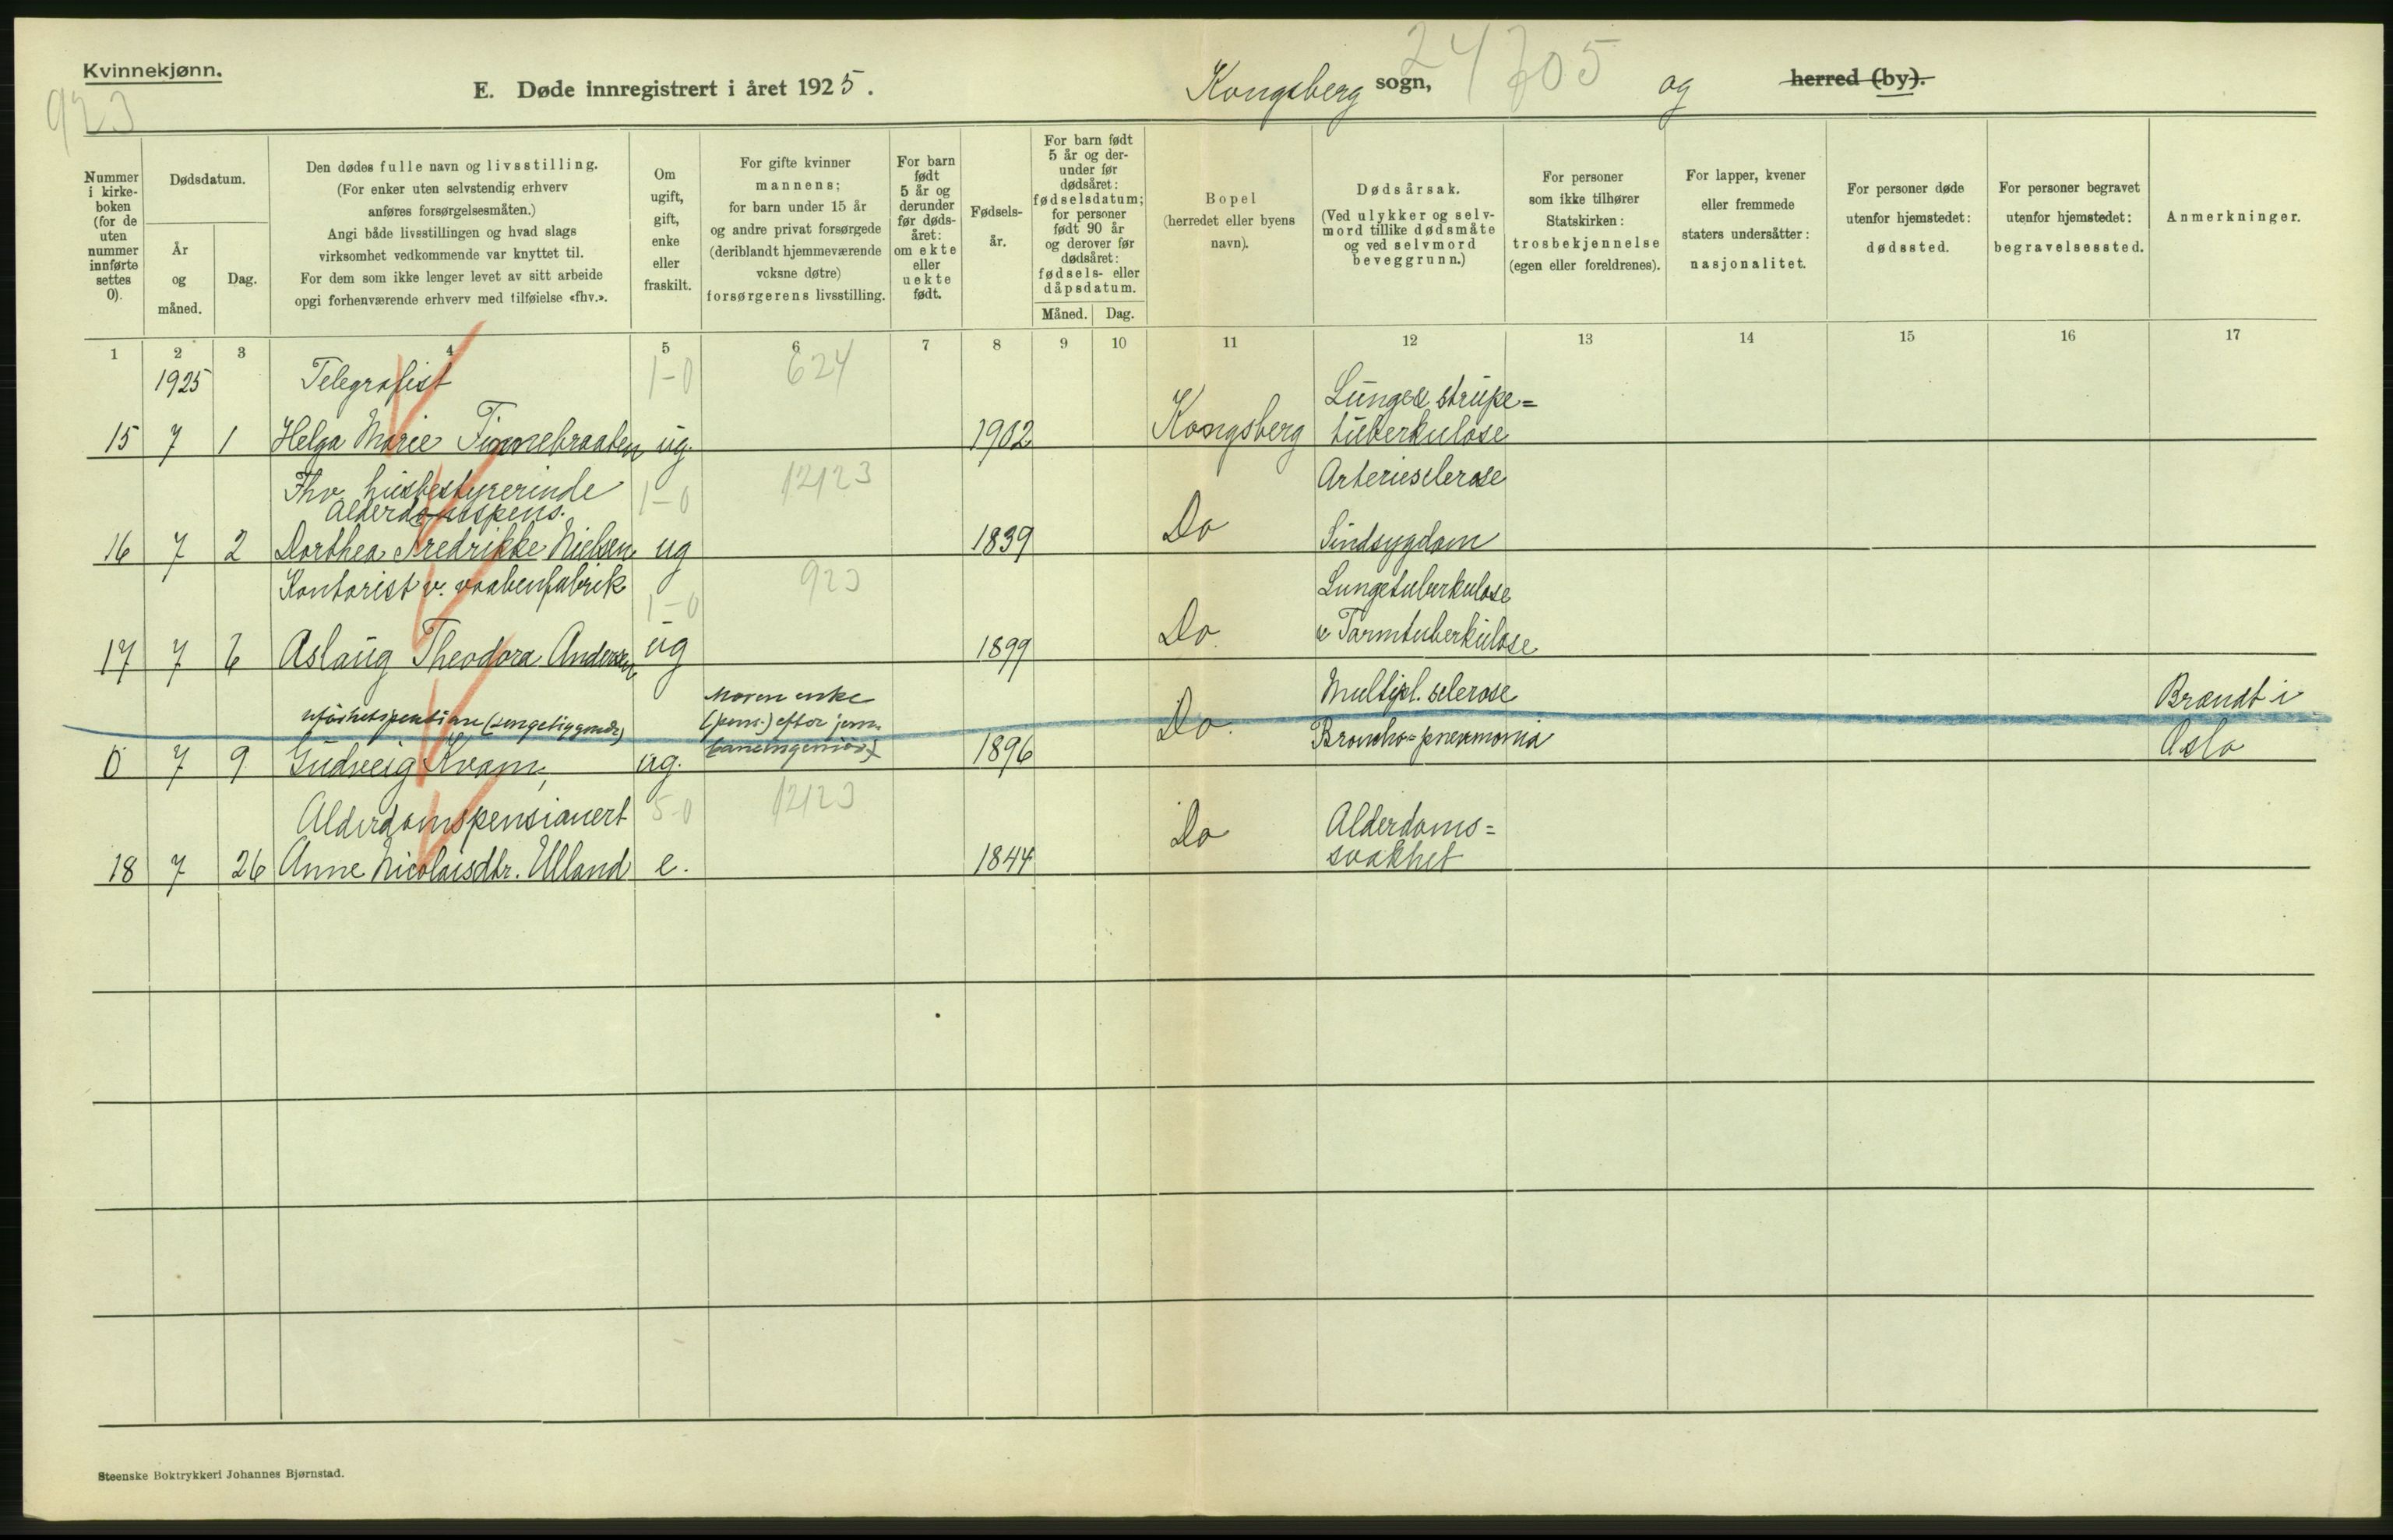 Kvinnekjønn.
923
E. Døde innregistrert i året 1925.
Kongsberg sogn, 24705 og herred (by).
Nummer i kirke-boken (for de uten nummer innførte settes 0).
Dødsdatum.
År og måned.
Dag.
Den dødes fulle navn og livsstilling.
(For enker uten selvstendig erhverv
anføres forsørgelsesmåten.)
Angi både livsstillingen og hvad slags
virksomhet vedkommende var knyttet til.
For dem som ikke lenger levet av sitt arbeide
opgi forhenværende erhverv med tilføielse «fhv.».
Om ugift, gift, enke eller fraskilt.
For gifte kvinner
mannens;
for barn under 15 år
og andre privat forsørgede
(deriblandt hjemmeværende
voksne døtre)
forsørgerens livsstilling.
For barn født 5 år og derunder før døds-året: om ekte eller uekte født.
Fødsels-år.
For barn født 5 år og der-under før dødsåret: fødselsdatum; for personer født 90 år og derover før dødsåret: fødsels- eller dåpsdatum.
Måned. Dag.
Bopel
(herredet eller byens
navn).
Dødsårsak.
(Ved ulykker og selv-
mord tillike dødsmåte
og ved selvmord
beveggrunn.)
For personer
som ikke tilhører
Statskirken:
trosbekjennelse
(egen eller foreldrenes).
For lapper, kvener
eller fremmede
staters undersåtter:
nasjonalitet.
For personer døde
utenfor hjemstedet:
dødssted.
For personer begravet
utenfor hjemstedet:
begravelsessted.
Anmerkninger.
1 2 3 4 5 6 7 8 9 10 11 12 13 14 15 16 17
1925 Telegrafist 1-0 624 Lunge & strupe=
15 7 1 Helga Marie Tinnebraaten ug. 1902 Kongsberg tuberkulose
Fhv. husbestyrerinde 1-0 12123 Arteriesclerose
Alderdomspens.
16 7 2 Dorthea Fredrikke Nielsen ug 1839 Do Sindsygdom
Kontorist v. vaabenfabrik 1-0 923 Lungetuberkulose
17 7 6 Aslaug Theodora Andersen ug 1899 Do. & Tarmtuberkulose
Moren enke
(pens.) efter jern-
baneingeniør)
Multipl. sclerose Brandt i
0 7 9 Gudveig Kvam, ug. 1896 Do. Broncho=pneumonia Oslo
Alderdomspensionert 5-0 12123 Alderdoms=
18 7 26 Anne Nicolaisdtr. Ulland e. 1844 Do svakhet
Steenske Boktrykkeri Johannes Bjørnstad.